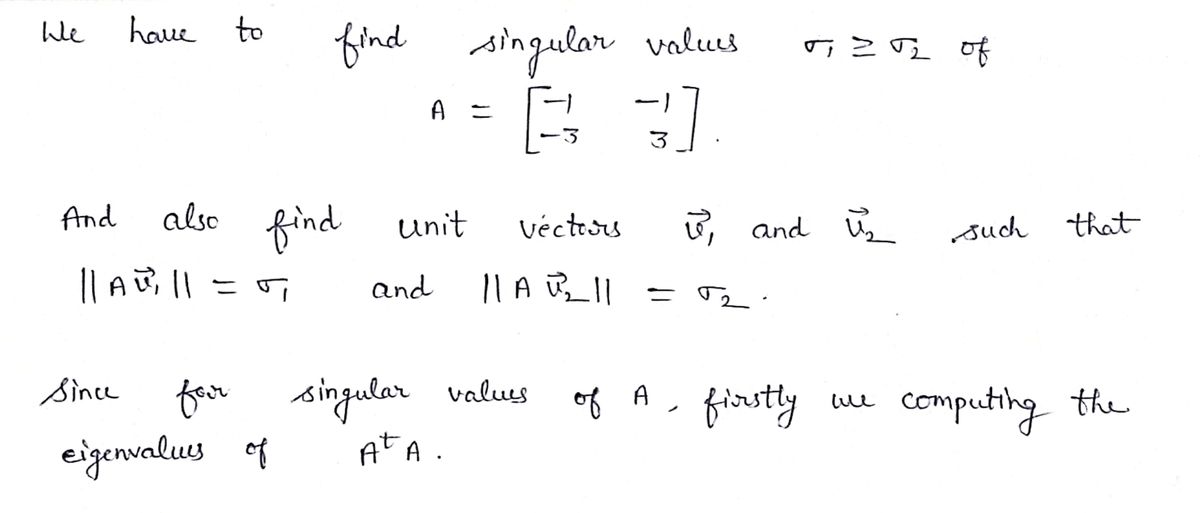 We have to find singular values σ₁ ≥ σ₂ of
A = [-1 -1
-3 3].
And also find unit vectors v⃗₁ and v⃗₂ such that
||A v⃗₁|| = σ₁ and ||A v⃗₂|| = σ₂.
Since for singular values of A, firstly we computing the
eigenvalues of AᵗA.